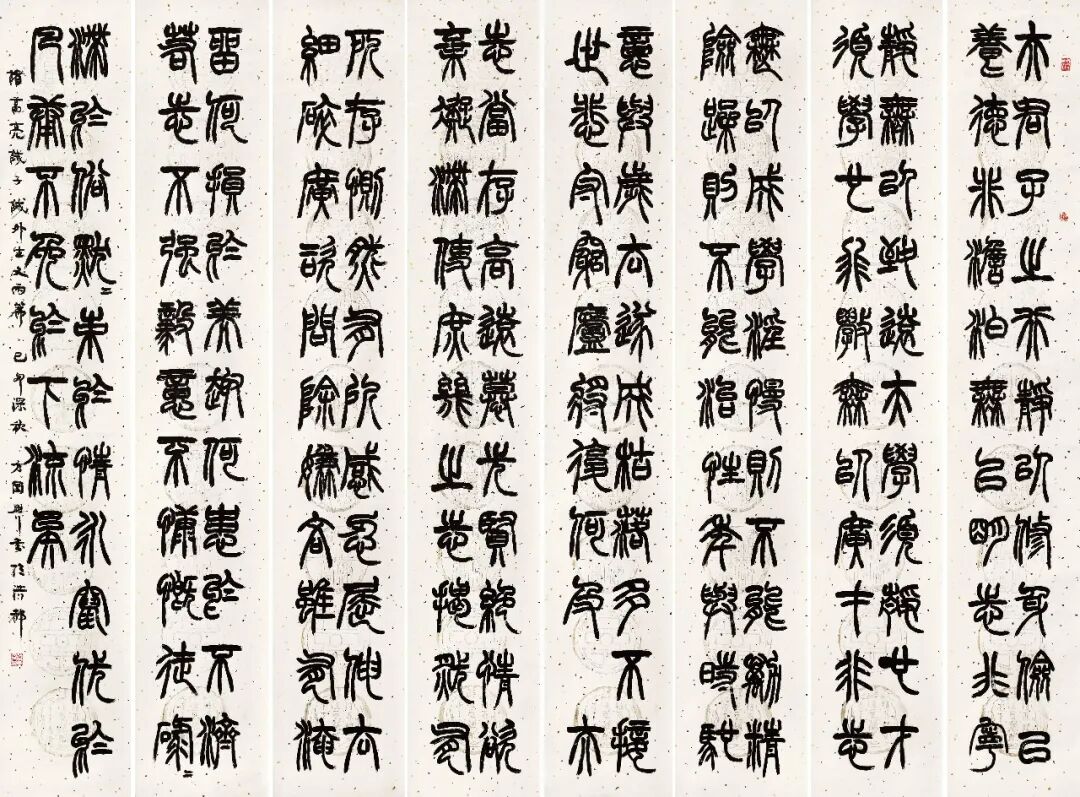 夫君子之行靜以修身儉以
養德非澹泊無以明志非寧
靜無以致遠夫學須靜也才
須學也非學無以廣才非志
無以成學淫慢則不能勵精
險躁則不能治性年與時馳
意與歲去遂成枯落多不接
世悲守窮廬將復何及夫
志當存高遠慕先賢絕情欲
棄凝滯使庶幾之志揭然有
所存惻然有所感忍屈伸去
細碎廣諮問除嫌吝雖有淹
留何損於美趣何患於不濟
若志不強毅意不慷慨徒碌〃
滯於俗默〃束於情永竄伏於
凡庸不免於下流矣
諸葛亮誡子誡外生文兩篇 己卯深秋